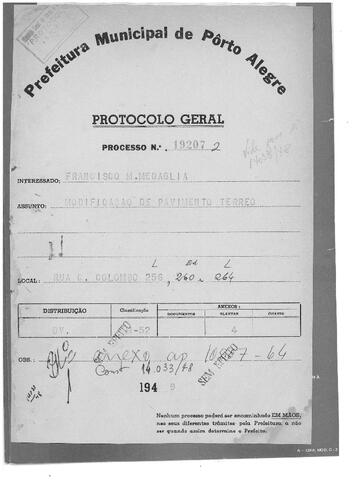 Prefeitura Municipal de Pôrto Alegre
PROTOCOLO GERAL
PROCESSO N.º 19207 2
INTERESSADO: FRANCISCO M. MEDAGLIA
ASSUNTO: MODIFICAÇÃO DE PAVIMENTO TERREO
LOCAL: RUA C. COLOMBO 256, 260 e 264
DISTRIBUIÇÃO Classificação ANEXOS:
DOCUMENTOS PLANTAS
OV. -52 4
SEM EFEITO
SEM EFEITO
OBS.: anexo ao -64
14.033/48
194 9
Nenhum processo poderá ser encaminhado EM MÃOS,
nos seus diferentes trâmites pela Prefeitura, a não
ser quando assim determine o Prefeito.